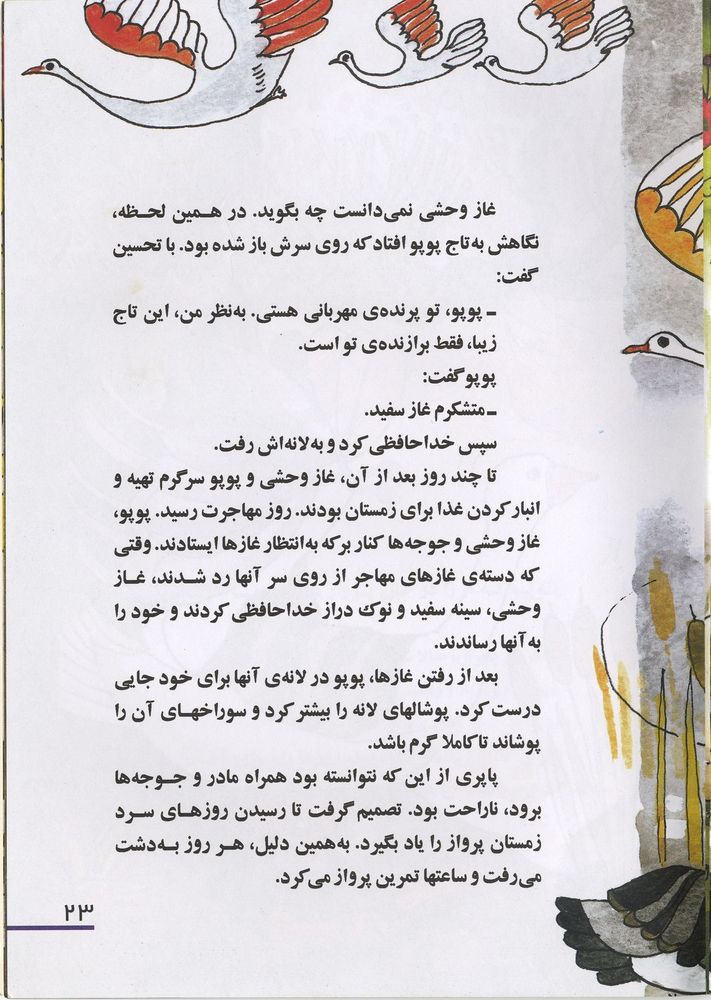 غاز وحشی نمی‌دانست چه بگوید. در همین لحظه،
نگاهش به تاج پوپو افتاد که روی سرش باز شده بود. با تحسین
گفت:
ـ پوپو، تو پرنده‌ی مهربانی هستی. به‌نظر من، این تاج
زیبا، فقط برازنده‌ی تو است.
پوپو گفت:
ـ متشکرم غاز سفید.
سپس خداحافظی کرد و به لانه‌اش رفت.
تا چند روز بعد از آن، غاز وحشی و پوپو سرگرم تهیه و
انبار کردن غذا برای زمستان بودند. روز مهاجرت رسید. پوپو،
غاز وحشی و جوجه‌ها کنار برکه به‌انتظار غازها ایستادند. وقتی
که دسته‌ی غازهای مهاجر از روی سر آنها رد شدند، غاز
وحشی، سینه سفید و نوک دراز خداحافظی کردند و خود را
به آنها رساندند.
بعد از رفتن غازها، پوپو در لانه‌ی آنها برای خود جایی
درست کرد. پوشالهای لانه را بیشتر کرد و سوراخهای آن را
پوشاند تا کاملا گرم باشد.
پاپری از این که نتوانسته بود همراه مادر و جوجه‌ها
برود، ناراحت بود. تصمیم گرفت تا رسیدن روزهای سرد
زمستان پرواز را یاد بگیرد. به‌همین دلیل، هر روز به‌دشت
می‌رفت و ساعتها تمرین پرواز می‌کرد.
۲۳